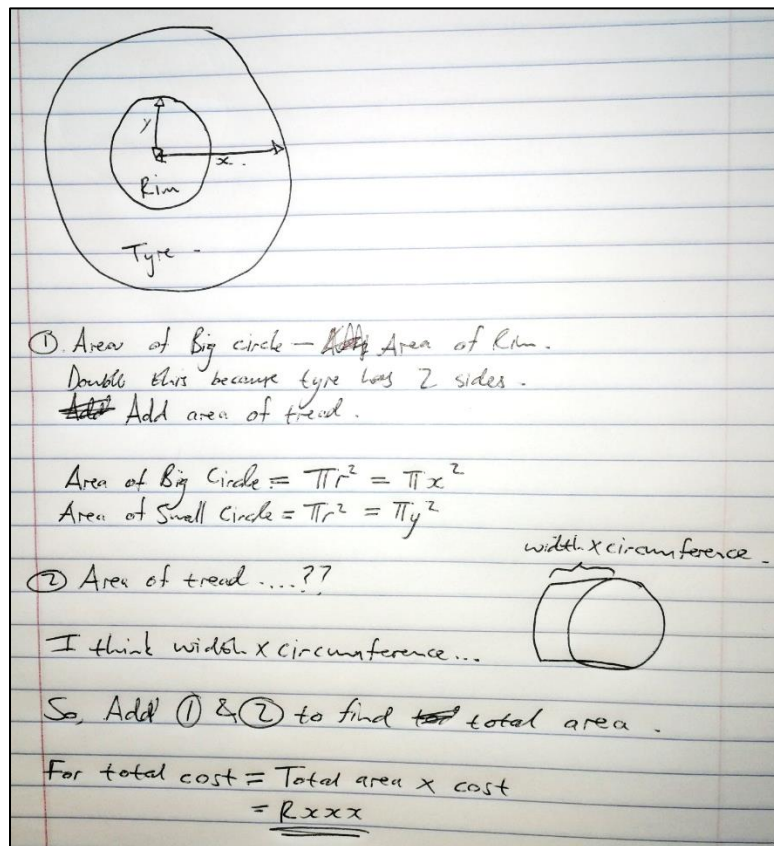 y
x.
Rim
Tyre -
① Area of Big circle - Area of Rim.
Double this because tyre has 2 sides.
Add area of tread.
Area of Big Circle = πr² = πx²
Area of Small Circle = πr² = πy²
width x circumference.
② Area of tread ....??
I think width x circumference...
So, Add ① & ② to find total area.
For total cost = Total area x cost
= Rxxx